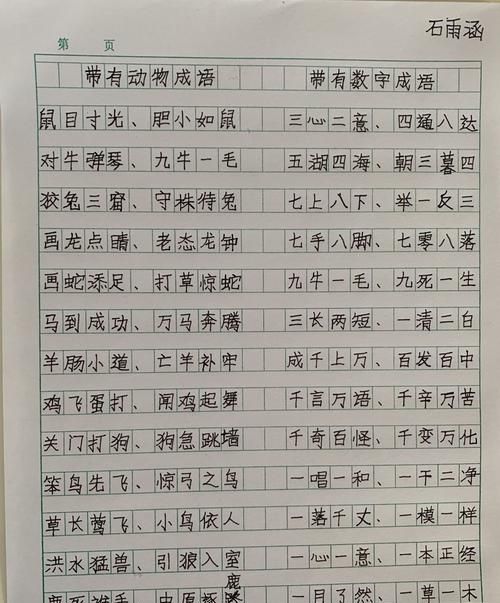 石雨涵
第 页
带有动物成语 带有数字成语
鼠目寸光、胆小如鼠 三心二意、四通八达
对牛弹琴、九牛一毛 五湖四海、朝三暮四
狡兔三窟、守株待兔 七上八下、举一反三
画龙点睛、老态龙钟 七手八脚、七零八落
画蛇添足、打草惊蛇 九牛一毛、九死一生
马到成功、万马奔腾 三长两短、一清二白
羊肠小道、亡羊补牢 成千上万、百发百中
鸡飞蛋打、闻鸡起舞 千言万语、千辛万苦
关门打狗、狗急跳墙 千奇百怪、千变万化
笨鸟先飞、惊弓之鸟 一唱一和、一干二净
草长莺飞、小鸟依人 一落千丈、一模一样
洪水猛兽、引狼入室 一心一意、一本正经
鹿死谁手、中原逐鹿 一目了然、一草一木